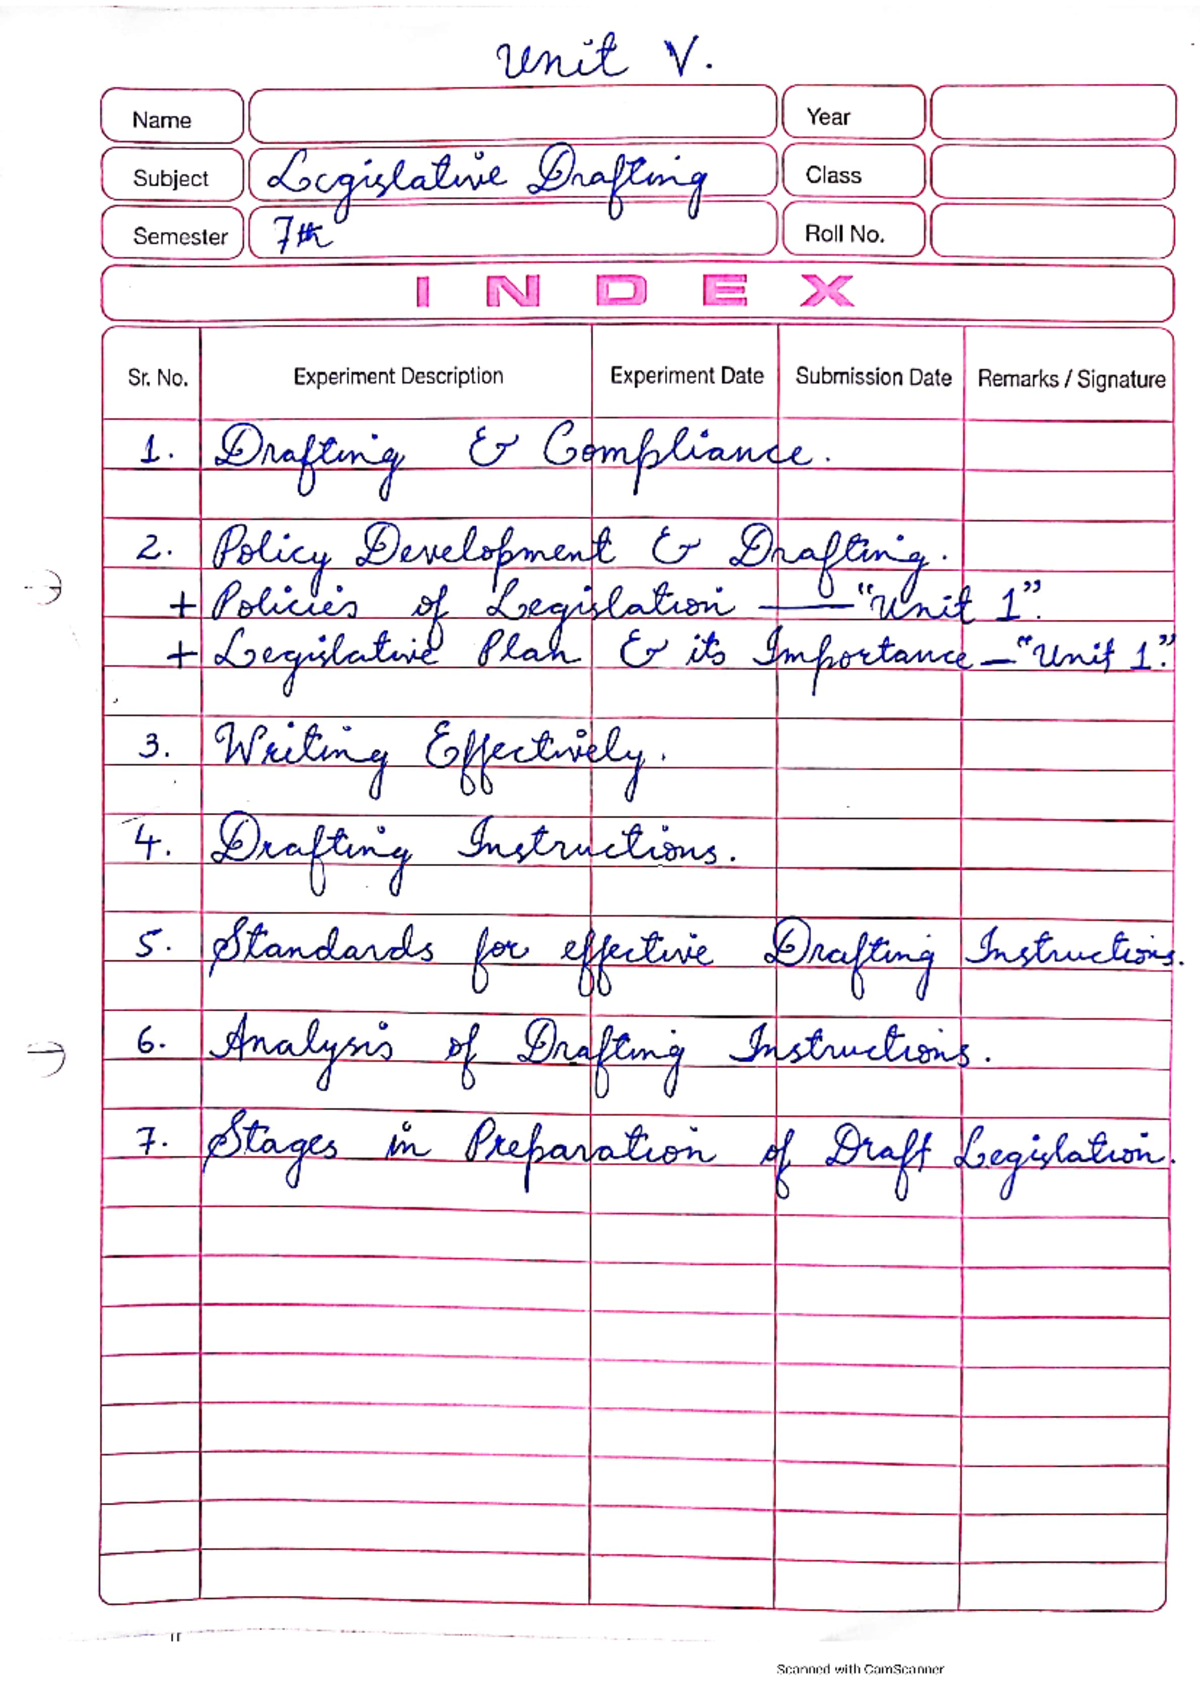 Unit V.
Name
Year
Subject Legislative Drafting
Class
Semester 7th
Roll No.
INDEX
Sr. No. Experiment Description Experiment Date Submission Date Remarks / Signature
1. Drafting & Compliance.
2. Policy Development & Drafting.
+ Policies of Legislation — "Unit 1".
+ Legislative Plan & its Importance — "Unit 1".
3. Writing Effectively.
4. Drafting Instructions.
5. Standards for effective Drafting Instructions.
6. Analysis of Drafting Instructions.
7. Stages in Preparation of Draft Legislation.
Scanned with CamScanner